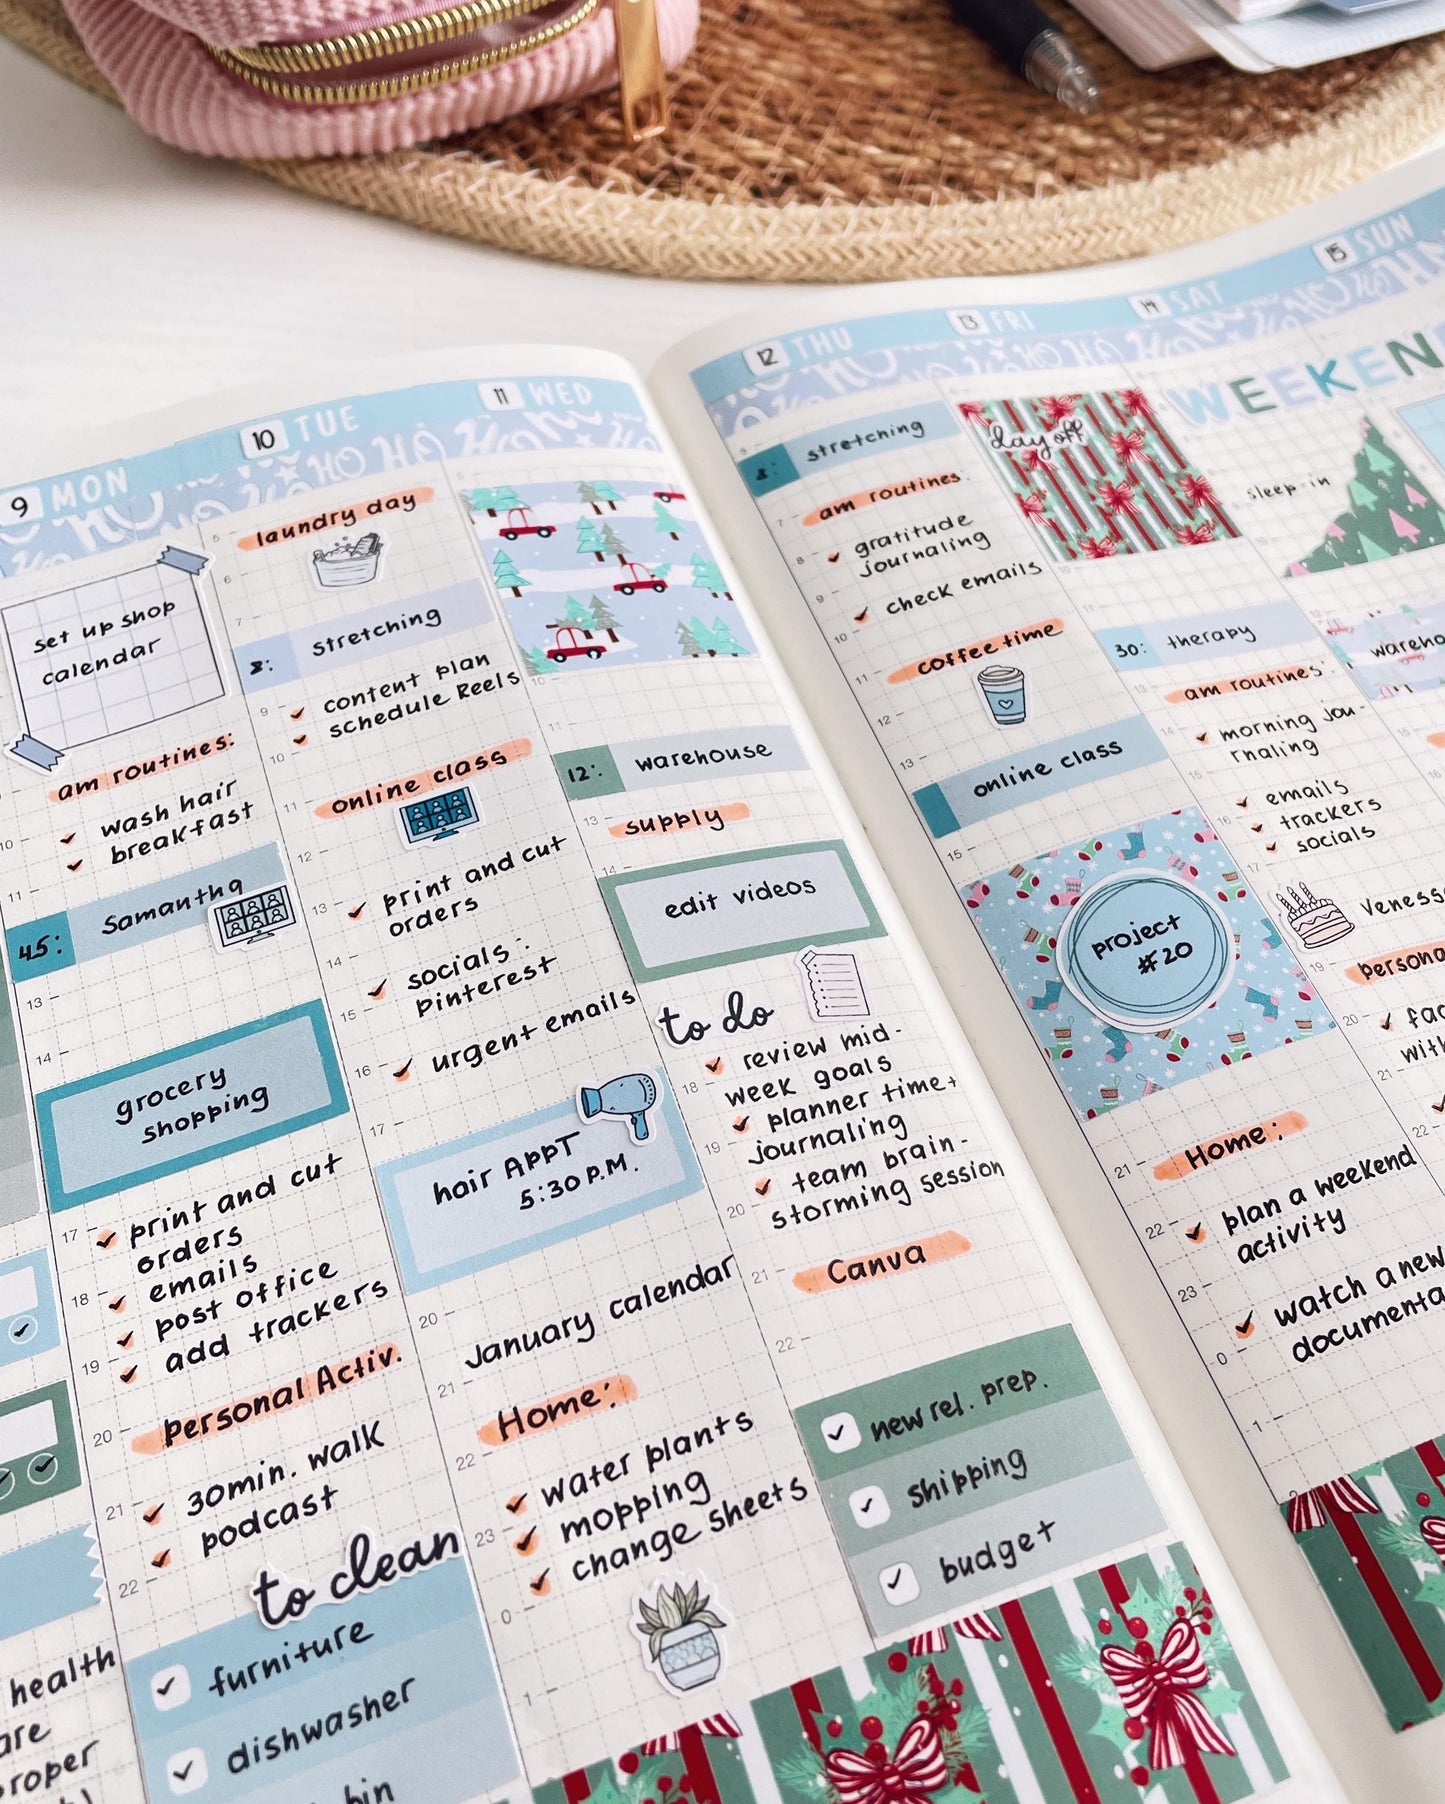 9 MON
set up shop
calendar
am routines:
wash hair
breakfast
45:
Samantha
grocery
shopping
print and cut
orders
emails
post office
add trackers
Personal Activ.
30min. walk
podcast
to clean
furniture
dishwasher
bin
health
10 TUE
laundry day
8:
stretching
content plan
schedule Reels
online class
print and cut
orders
socials:
pinterest
urgent emails
hair APPT
5:30 P.M.
January calendar
Home:
water plants
mopping
change sheets
11 WED
12:
warehouse
supply
edit videos
to do
review mid-
week goals
planner time+
journaling
team brain-
storming session
Canva
new rel. prep.
shipping
budget
12 THU
8:
stretching
am routines:
gratitude
journaling
check emails
coffee time
online class
project
#20
Home:
plan a weekend
activity
watch a new
13 FRI
day off
30:
therapy
am routines:
morning jou-
rnaling
emails
trackers
socials
14 SAT
sleep-in
15 SUN